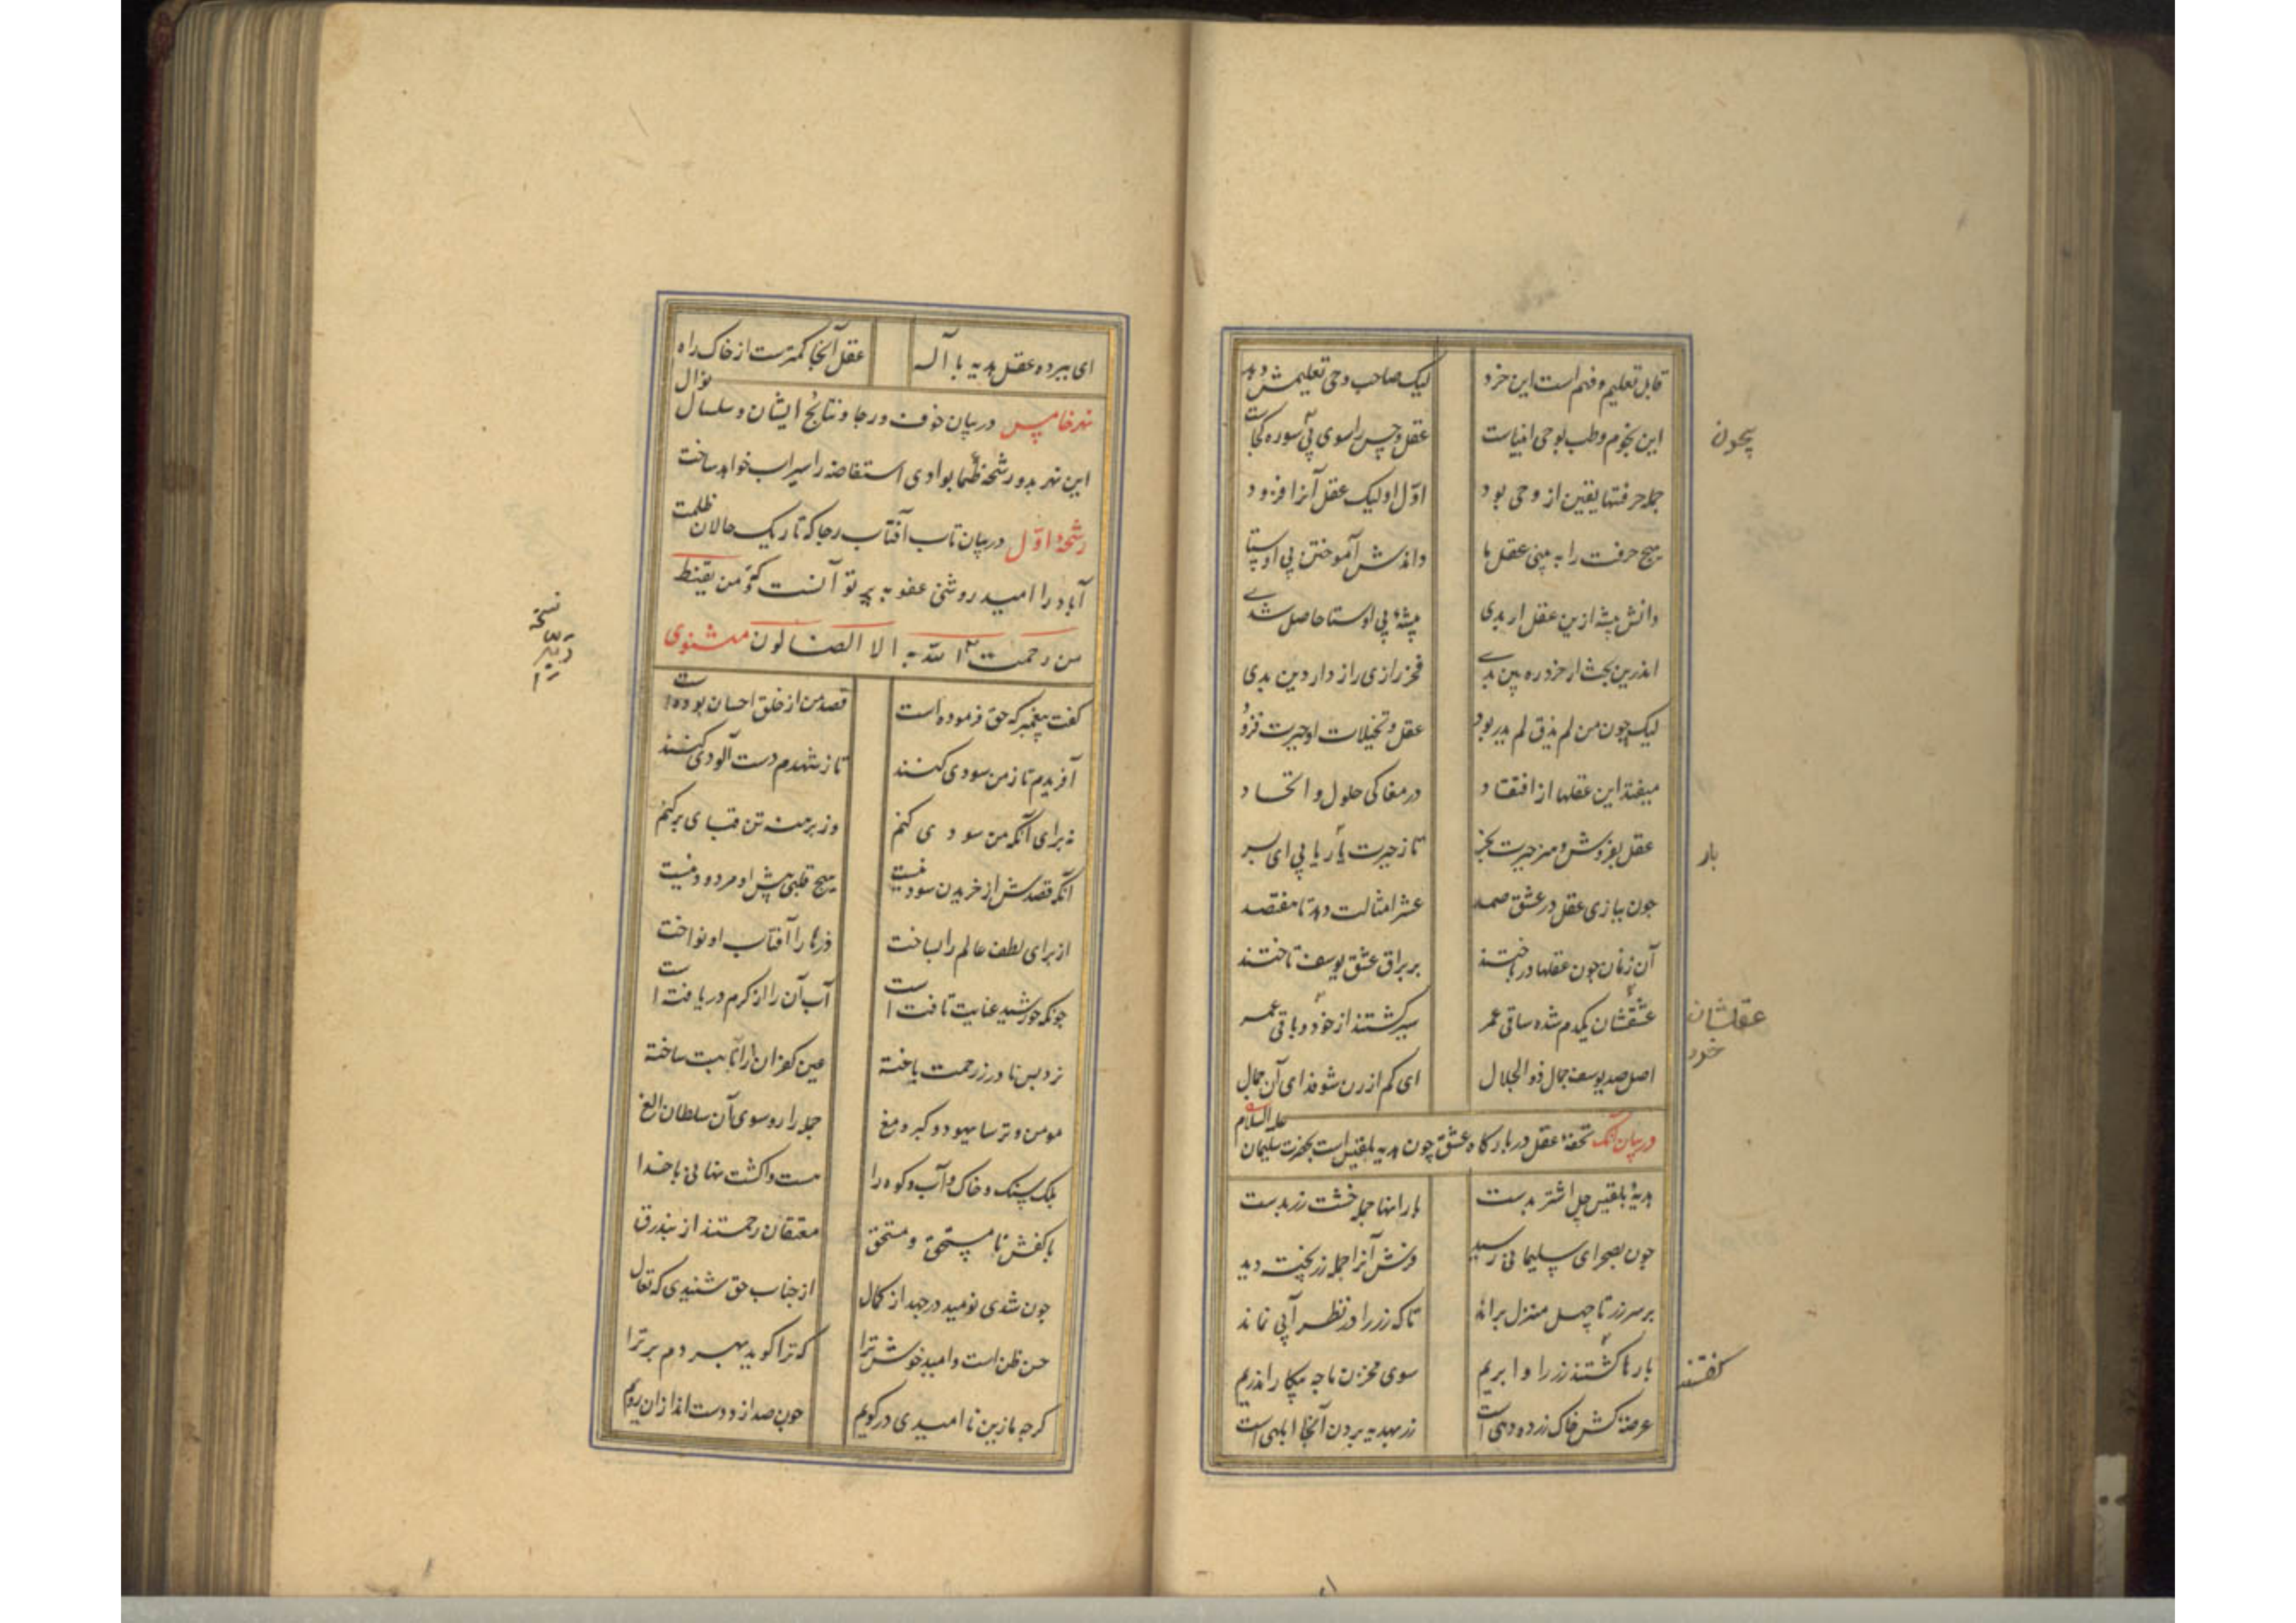 قابل تعلیم و فهم است این خرد لیک صاحب وحی تعلیمش دهد
این نجوم و طب بوحی انبیاست عقل و حس را سوی بی سو ره کجاست
بیچون
جمله حرفتها یقین از وحی بود اوّل او لیک عقل آنرا فزود
هیچ حرفت را به بینی عقل ما داندش آموختن بی اوستا
دانش پیشه ازین عقل ار بدی پیشهٔ بی اوستا حاصل شدی
اندرین بحث ار خرد ره بین بدی فخر رازی راز دار دین بدی
لیک چون من لم یذق لم یدر بود عقل و تخیلات او حیرت فزود
میفتد این عقلها از افتقاد در مغاکی حلول و اتحاد
عقل بفروش و هنر حیرت بخر تا ز حیرت یار یابی ای پسر
یار
چون ببازی عقل در عشق صمد عشر امثالت دهد تا هفتصد
آن زنان چون عقلها درباختند بر براق عشق یوسف تاختند
عشقشان یکدم شده ساقی عمر سیر گشتند از خود و باقی عمر
عقلشان
خرد
اصل صد یوسف جمال ذو الجلال ای کم از زن شو فدای آن جمال
در بیان آنک تحفهٔ عقل در بارگاه عشق چون هدیه بلقیس است بحضرت سلیمان علیه السلام
هدیهٔ بلقیس چل اشتر بدست بار اینها جمله خشت زر بدست
چون بصحرای سلیمانی رسید فرش آنرا جمله زر پخته دید
بر سر زر تا چهل منزل براند تا که زر را در نظر آبی نماند
بارها گشتند زر را وا بریم سوی مخزن ما چه بیکار اندریم
گفتند
عرصهٔ کش خاک زر ده دهی است زر بهدیه بردن آنجا ابلهی است
ای ببرده عقل هدیه با آله عقل آنجا کمترست از خاک راه
نهر خامس در بیان خوف و رجا و نتایج ایشان و سلسال نوال
این نهر بدو رشحه ظمای وادی استفاضه را سیراب خواهد ساخت
رشحهٔ اوّل در بیان تاب آفتاب رجا که تاریک حالان ظلمت
آباد را امید روشنی عفو به پرتو آنست که و من یقنط
من رحمت الله الا الضالون مثنوی
گفت پیغمبر که حق فرموده است قصد من از خلق احسان بوده است
آفریدم تا ز من سودی کنند تا ز شهدم دست آلودی کنند
نه برای آنکه من سودی کنم وز برهنه تن قبای بر کنم
آنکه قصدش از خریدن سود نیست هیچ قلبی پیش او مردود نیست
از برای لطف عالم را بساخت ذرها را آفتاب او نواخت
چونکه خورشید عنایت تافت است آب آن را از کرم دریافته است
نرد بس نادر ز رحمت باخته عین کفران را انابت ساخته
مومن و ترسا یهود و کبر و مغ جمله را رو سوی آن سلطان الغ
بلک سنک و خاک و آب و کوه را هست واکشت نهانی با خدا
با کفش نامستحق و مستحق معتقان رحمتند از بند رق
چون شدی نومید در جهد از کلال از جناب حق شنیدی که تعال
حسن ظن است و امید خوش ترا که ترا کوید بهر دم برترا
کرچه ما زین نا امیدی در کویم چون صدا زد دست اندازان رویم
نسخه